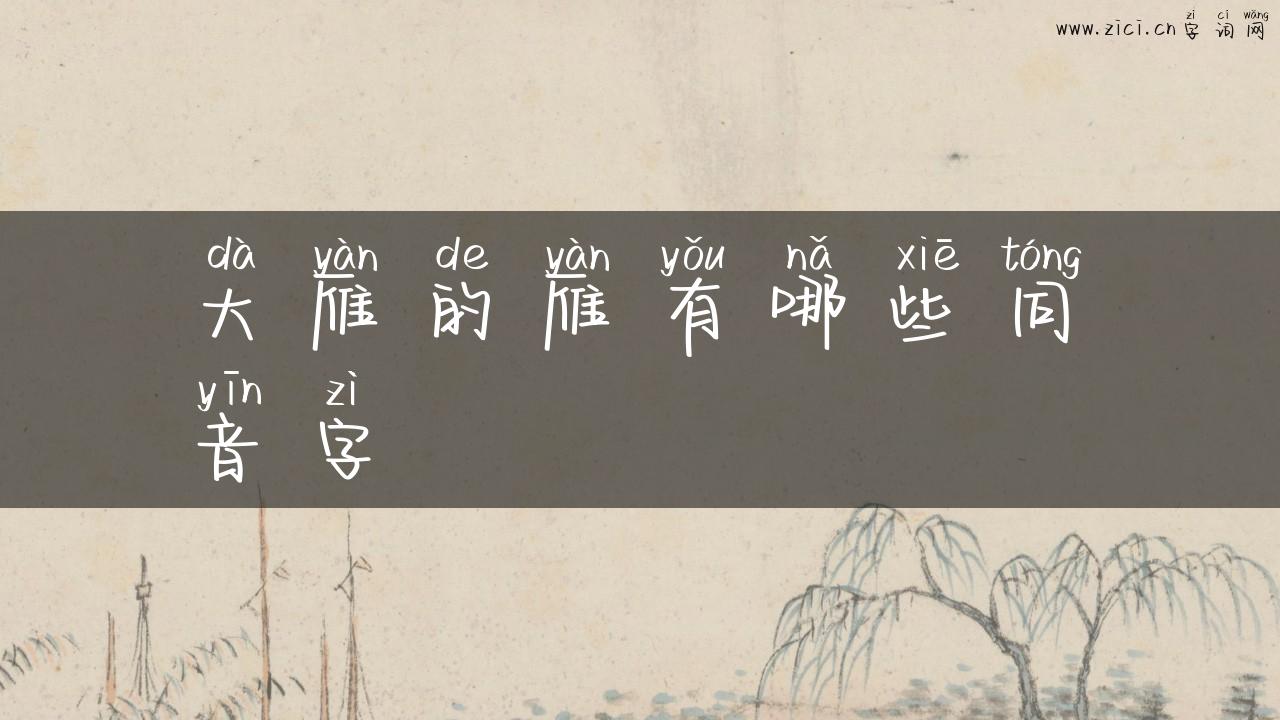 zì cí wǎng
www.zici.cn 字词网
dà yàn de yàn yǒu nǎ xiē tóng
大雁的雁有哪些同
yīn zì
音字